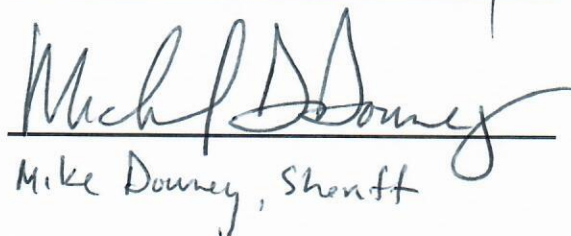 Michael D Downey
Mike Downey, Sheriff